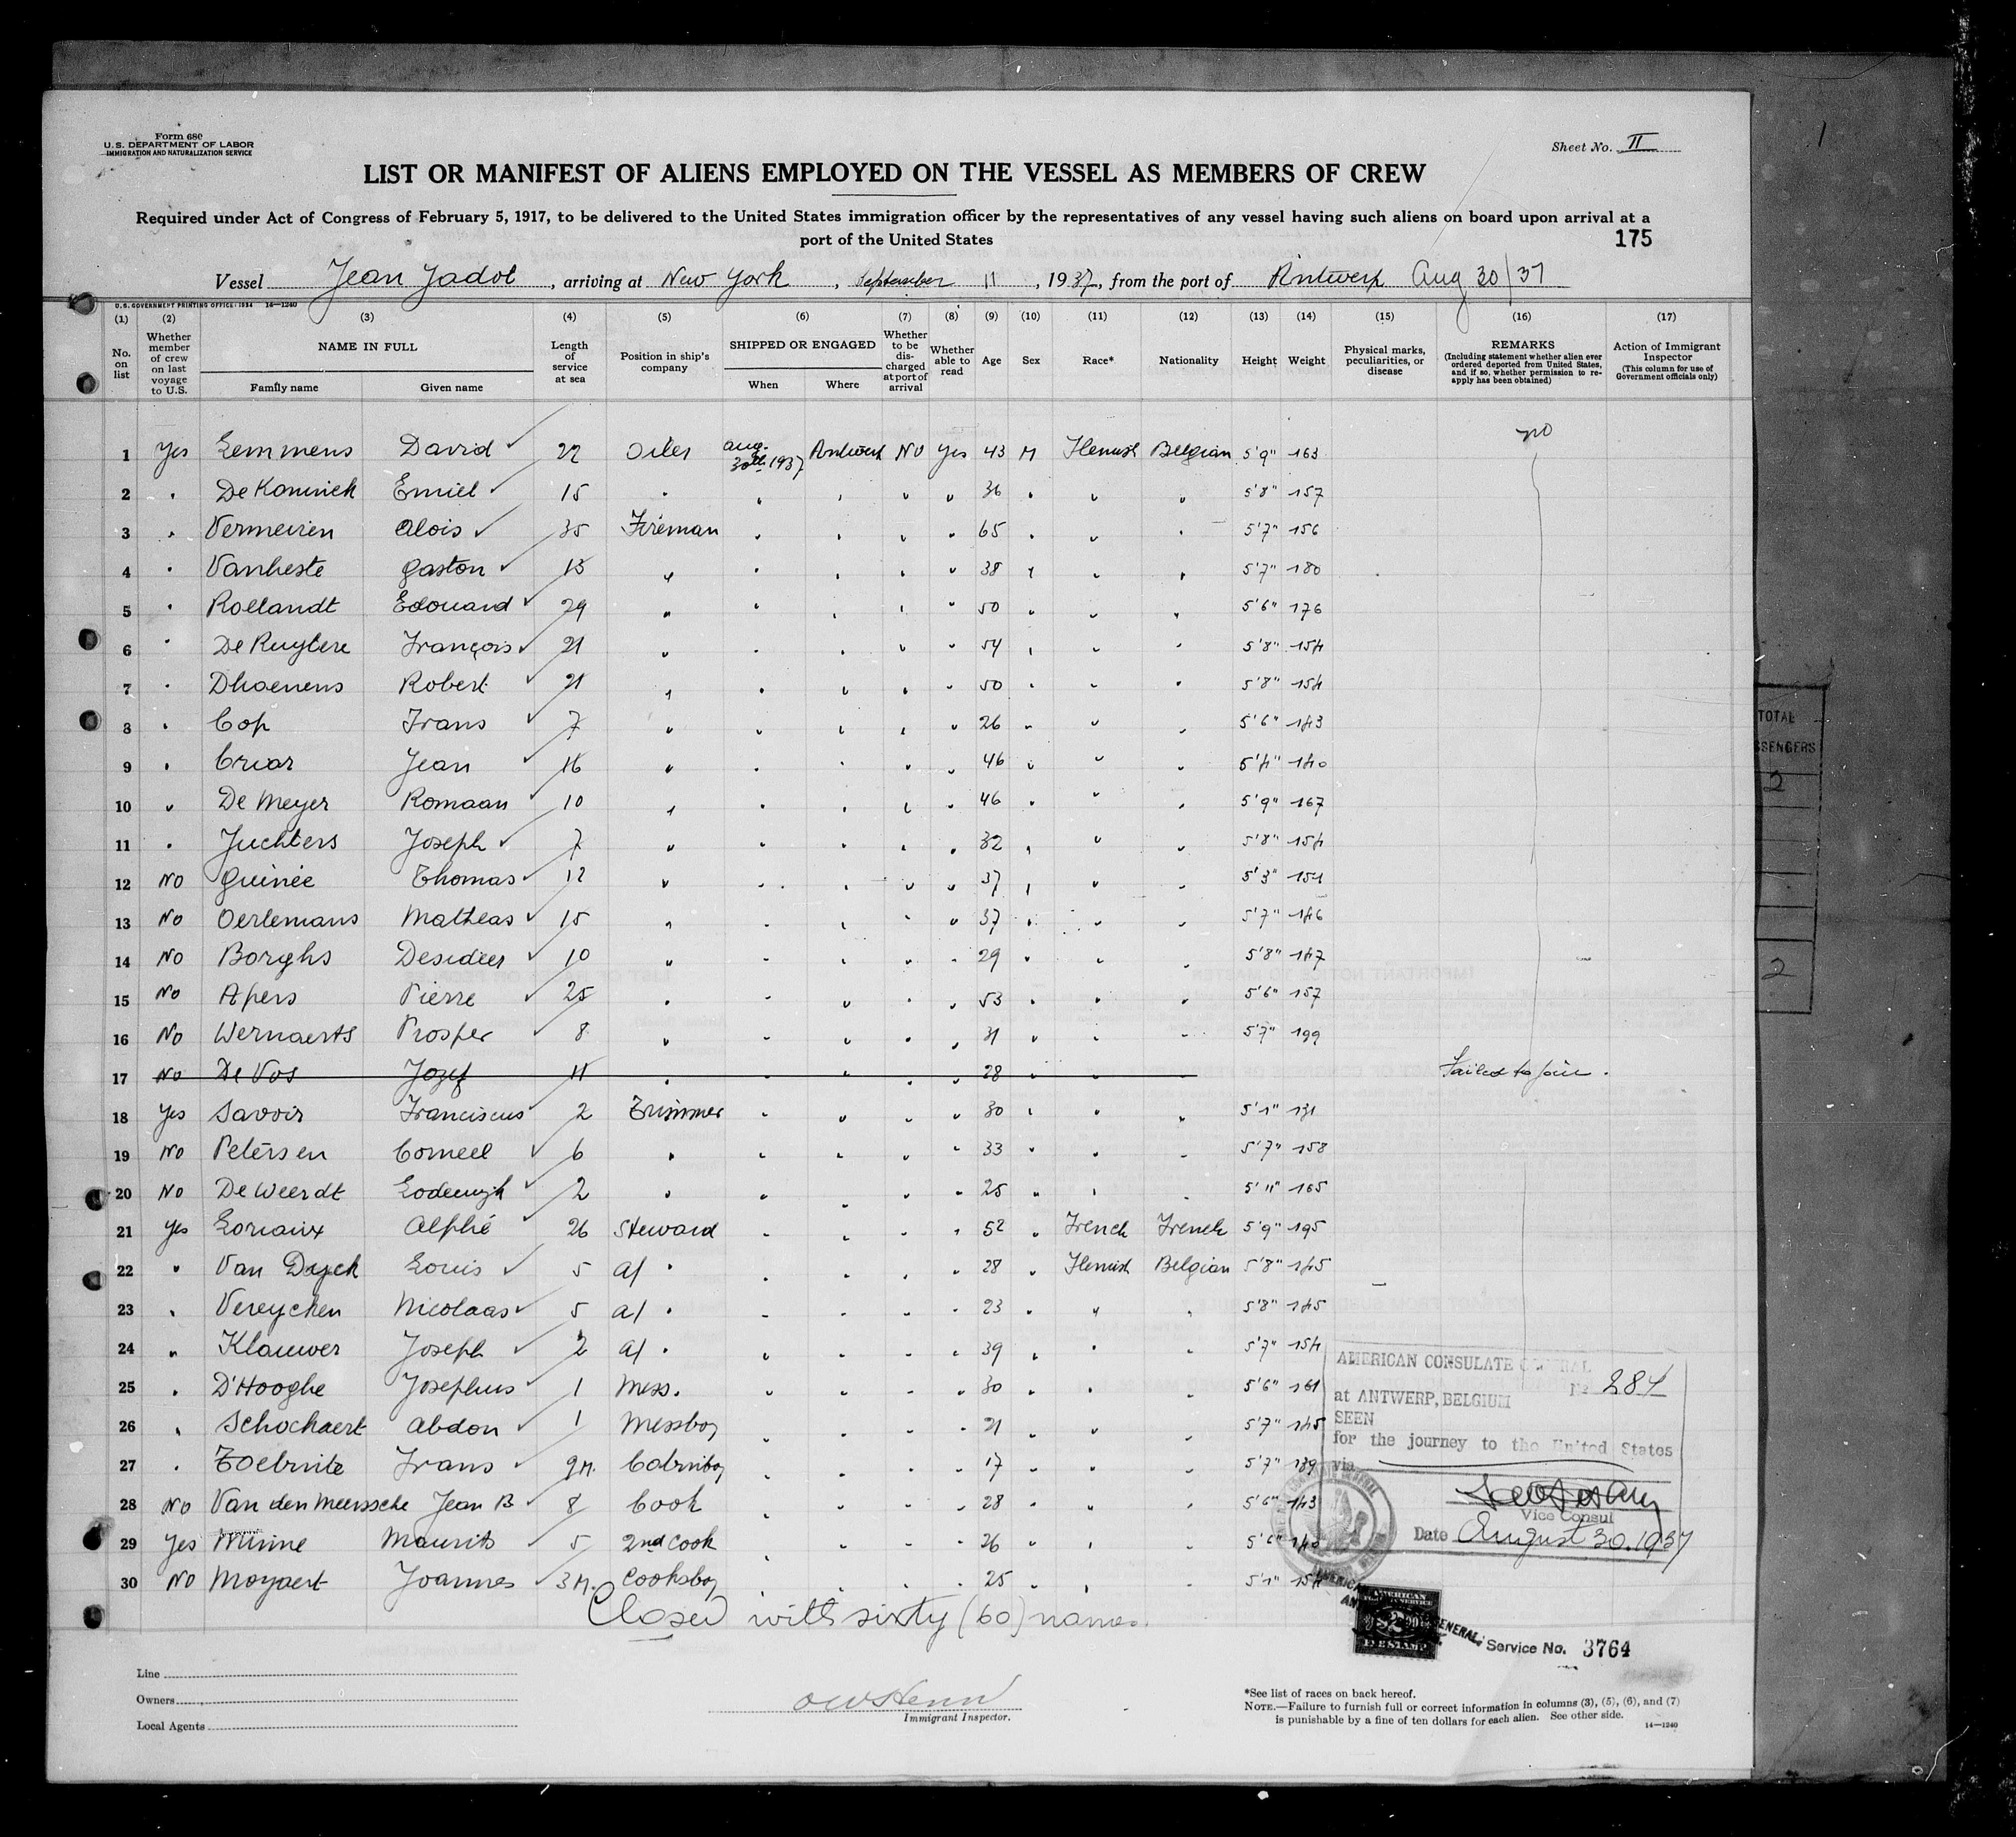 Form 680
U. S. DEPARTMENT OF LABOR
IMMIGRATION AND NATURALIZATION SERVICE
Sheet No. II
LIST OR MANIFEST OF ALIENS EMPLOYED ON THE VESSEL AS MEMBERS OF CREW
Required under Act of Congress of February 5, 1917, to be delivered to the United States immigration officer by the representatives of any vessel having such aliens on board upon arrival at a
port of the United States
175
Vessel Jean Jadot, arriving at New York, September 11, 1937, from the port of Antwerp Aug 30/37
U. S. GOVERNMENT PRINTING OFFICE: 1934 14—1240
(1) (2) (3) (4) (5) (6) (7) (8) (9) (10) (11) (12) (13) (14) (15) (16) (17)
No. on list
Whether member of crew on last voyage to U.S.
NAME IN FULL
Family name
Given name
Length of service at sea
Position in ship's company
SHIPPED OR ENGAGED
When
Where
Whether to be discharged at port of arrival
Whether able to read
Age
Sex
Race*
Nationality
Height
Weight
Physical marks, peculiarities, or disease
REMARKS
(Including statement whether alien ever ordered deported from United States, and if so, whether permission to reapply has been obtained)
Action of Immigrant Inspector
(This column for use of Government officials only)
1 Yes Lemmens David 22 Oiler Aug. 30th 1937 Antwerp No Yes 43 M Flemish Belgian 5'9" 163 no
2 " De Koninck Emiel 15 " " " " " 36 " " " 5'8" 157
3 " Vermeiren Alois 35 Fireman " " " " 65 " " " 5'7" 156
4 " Vanheste Gaston 13 " " " " " 38 " " " 5'7" 180
5 " Rollandt Edouard 29 " " " " " 50 " " " 5'6" 176
6 " De Ruytere François 21 " " " " " 54 " " " 5'8" 154
7 " Dhaenens Robert 21 " " " " " 50 " " " 5'8" 154
8 " Cop Frans 7 " " " " " 26 " " " 5'6" 143
9 " Criar Jean 16 " " " " " 46 " " " 5'4" 140
10 " De Meyer Romaan 10 " " " " " 46 " " " 5'9" 167
11 " Juchters Joseph 7 " " " " " 32 " " " 5'8" 154
12 No Guinée Thomas 12 " " " " " 37 " " " 5'3" 151
13 No Oerlemans Matheas 15 " " " " " 37 " " " 5'7" 146
14 No Borghs Desideer 10 " " " " " 29 " " " 5'8" 147
15 No Apers Pierre 25 " " " " " 53 " " " 5'6" 157
16 No Wernaerts Prosper 8 " " " " " 31 " " " 5'7" 199
17 No De Vos Jozef 11 " " " " " 28 " " " Failed to join.
18 Yes Savoir Franciscus 2 Trimmer " " " " 30 " " " 5'1" 131
19 No Petersen Corneel 6 " " " " " 33 " " " 5'7" 158
20 No De Weerdt Lodewijk 2 " " " " " 25 " " " 5'11" 165
21 Yes Loriaux Alphé 26 Steward " " " " 52 " French French 5'9" 195
22 " Van Dyck Louis 5 a/ " " " " " 28 " Flemish Belgian 5'8" 145
23 " Vereycken Nicolaas 5 a/ " " " " " 23 " " " 5'8" 145
24 " Klauwer Joseph 2 a/ " " " " " 39 " " " 5'7" 154
25 " D'Hooghe Josephus 1 Mess. " " " " 30 " " " 5'6" 161
26 " Schockaert Abdon 1 Messboy " " " " 21 " " " 5'7" 145
27 " Toebinte Frans 9M. Cabinboy " " " " 17 " " " 5'7" 139
28 No Van den Meerssche Jean B 8 Cook " " " " 28 " " " 5'6" 143
29 Yes Minne Maurits 5 2nd Cook " " " " 26 " " " 5'6" 140
30 No Moyaert Joannes 3M. Cooksboy " " " " 25 " " " 5'1" 154
Closed with sixty (60) names.
AMERICAN CONSULATE GENERAL
No 284
at ANTWERP, BELGIUM
SEEN
for the journey to the United States
via
Vice Consul
Date August 30. 1937
Service No. 3764
Line
Owners
Local Agents
Immigrant Inspector.
*See list of races on back hereof.
NOTE.—Failure to furnish full or correct information in columns (3), (5), (6), and (7)
is punishable by a fine of ten dollars for each alien. See other side.
14—1240
TOTAL
2
2